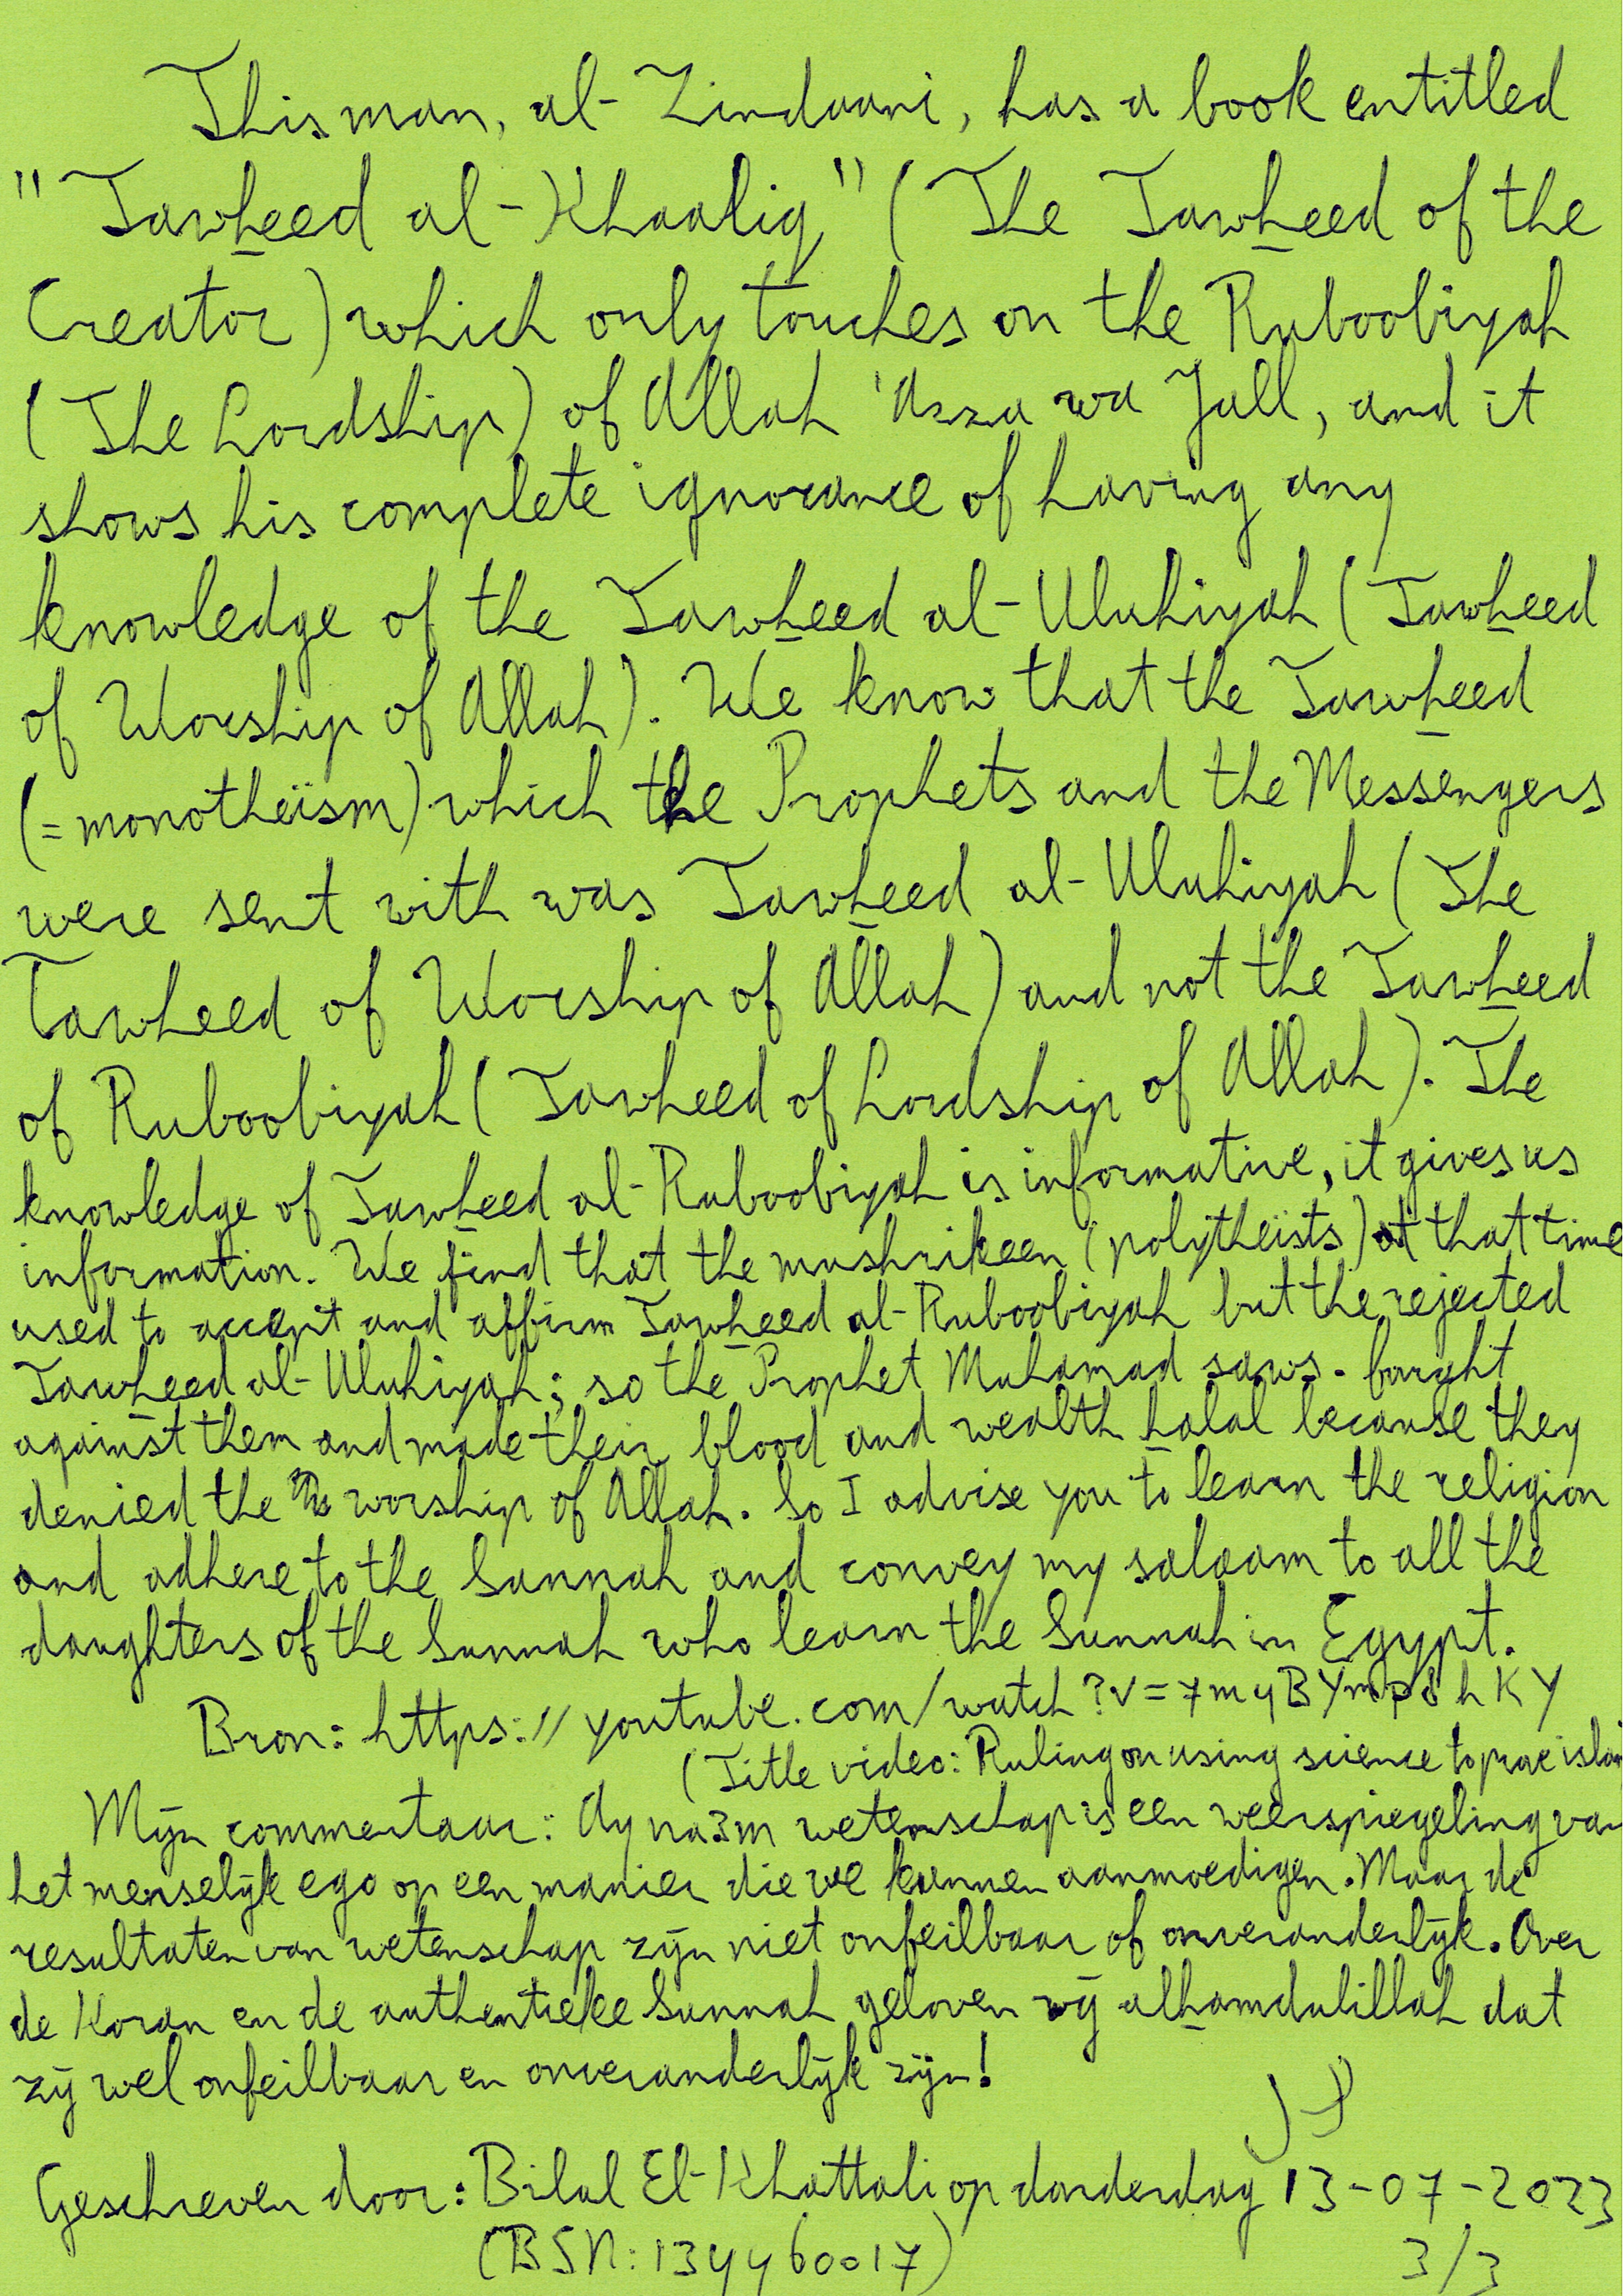 This man, al-Zindaani, has a book entitled
"Tawheed al-Khaaliq" (The Tawheed of the
Creator) which only touches on the Ruboobiyah
(The Lordship) of Allah 'Azza wa Jall, and it
shows his complete ignorance of having any
knowledge of the Tawheed al-Uluhiyah (Tawheed
of Worship of Allah). We know that the Tawheed
(=monotheïsm) which the Prophets and the Messengers
were sent with was Tawheed al-Uluhiyah (The
Tawheed of Worship of Allah) and not the Tawheed
of Ruboobiyah (Tawheed of Lordship of Allah). The
knowledge of Tawheed al-Ruboobiyah is informative, it gives us
information. We find that the mushrikeen (polytheïsts) at that time
used to accept and affirm Tawheed al-Ruboobiyah but the rejected
Tawheed al-Uluhiyah; so the Prophet Muhamad saws. faught
against them and made their blood and wealth halal because they
denied the worship of Allah. So I advise you to learn the religion
and adhere to the Sunnah and convey my salaam to all the
daughters of the Sunnah who learn the Sunnah in Egypt.
Bron: https://youtube.com/watch?v=7myBYmp8hKY
(Title video: Ruling on using science to prove islam
Mijn commentaar: wetenschap is een weerspiegeling van
het menselijk ego op een manier die we kunnen aanmoedigen. Maar de
resultaten van wetenschap zijn niet onfeilbaar of onveranderlijk. Over
de Koran en de authentieke Sunnah geloven wij alhamdulillah dat
zij wel onfeilbaar en onveranderlijk zijn!
Geschreven door: Bilal El-Khattali op donderdag 13-07-2023
(BSN: 134460017)
3/3